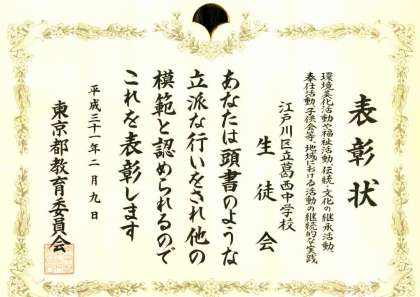 表彰状
環境美化活動や福祉活動、伝統・文化の継承活動、
奉仕活動、子供会等、地域における活動の継続的な実践
江戸川区立葛西中学校
生徒会
あなたは頭書のような
立派な行いをされ他の
模範と認められるので
これを表彰します
平成三十一年二月九日
東京都教育委員会